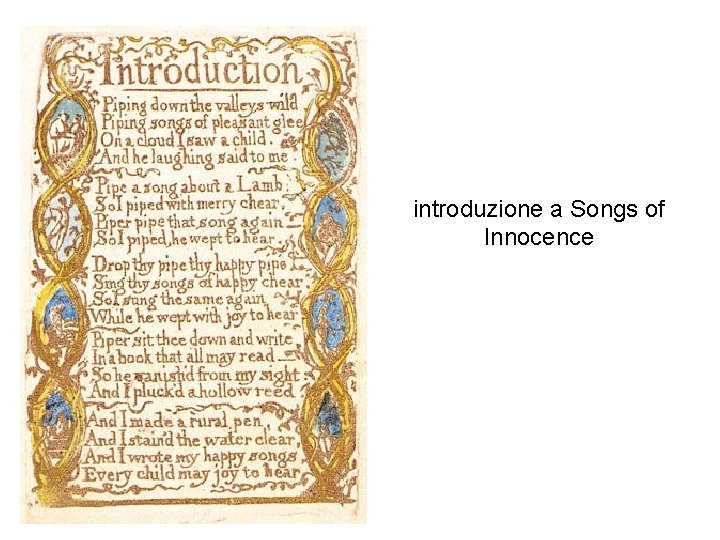 Introduction
Piping down the valleys wild
Piping songs of pleasant glee
On a cloud I saw a child.
And he laughing said to me.
Pipe a song about a Lamb:
So I piped with merry chear,
Piper pipe that song again—
So I piped, he wept to hear.
Drop thy pipe thy happy pipe
Sing thy songs of happy chear,
So I sung the same again
While he wept with joy to hear
Piper sit thee down and write
In a book that all may read—
So he vanish'd from my sight.
And I pluck'd a hollow reed.
And I made a rural pen,
And I stain'd the water clear,
And I wrote my happy songs
Every child may joy to hear
introduzione a Songs of
Innocence